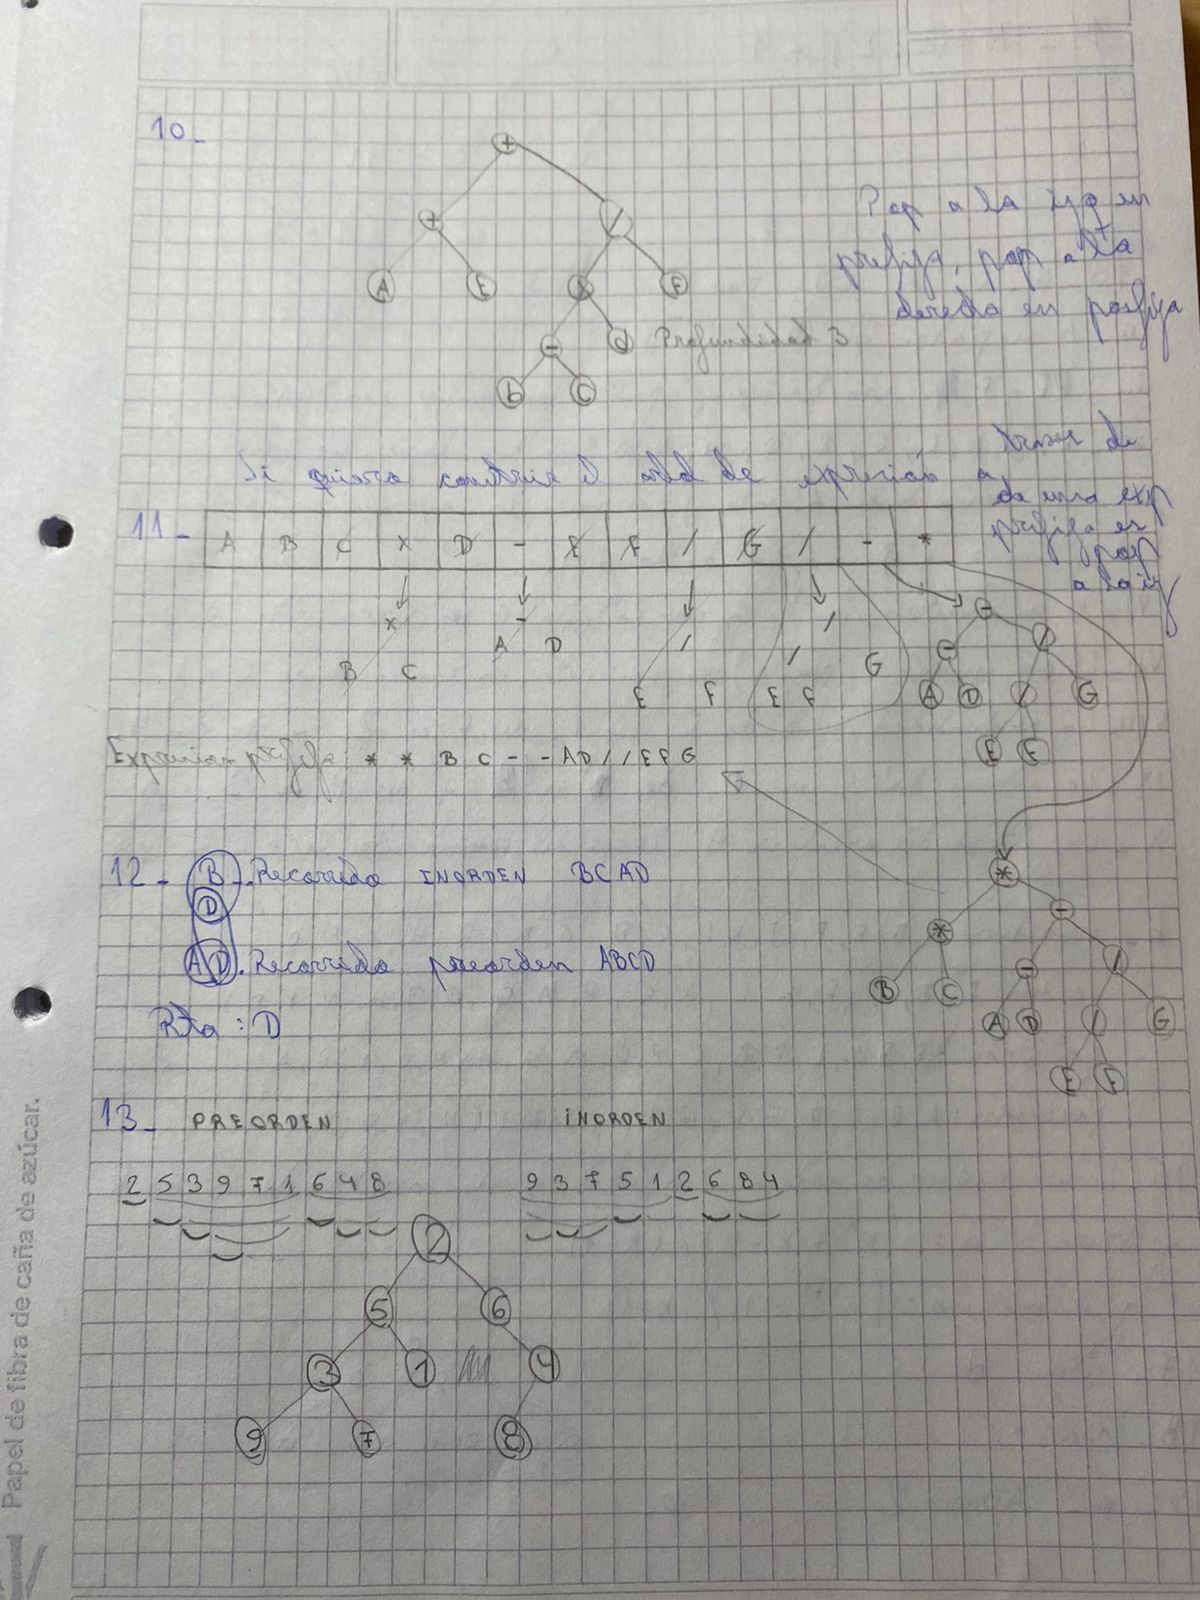 10-
+
+ /
A E * F
- d Profundidad 3
b C
Pop a la izq en
prefija, pop a la
derecha en posfija
Si quiero construir el arbol de expresión a
traves de
de una exp
prefija es
pop
a la izq
11- A B C * D - E F / G / - *
* - / /
B C A D E F / G
E F
-
- /
A D / G
E F
Expresion prefija: * * B C - - A D / / E F G
*
* -
B C - /
A D / G
E F
12- B. Recorrido INORDEN BCAD
D
AD. Recorrido preorden ABCD
Rta: D
13- PREORDEN INORDEN
2 5 3 9 7 1 6 4 8 9 3 7 5 1 2 6 8 4
2
5 6
3 1 4
9 7 8
Papel de fibra de caña de azúcar.